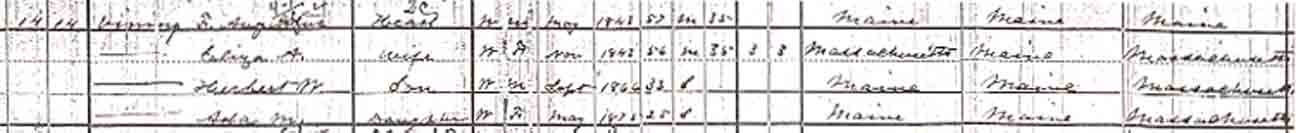 14 14 Vining F. Augustus Head W M May 1843 57 M 35 Maine Maine Maine
Eliza A. Wife W F Nov 1843 56 M 35 3 3 Massachusetts Maine Massachusetts
Herbert W. Son W M Sept S Maine Maine Massachusetts
Ada M. Daughter W F May 25 S Maine Maine Massachusetts